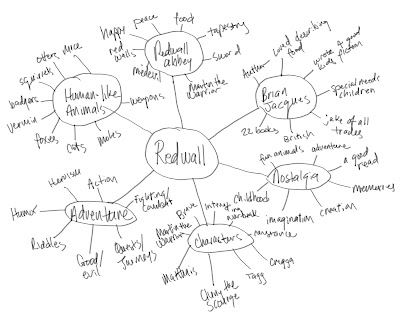 Redwall
Redwall
abbey
happy
peace
food
tapestry
sword
Martin the
Warrior
medevil
red
walls
Brian
Jacques
Author
loved describing
food
wrote a good
kids fiction
special needs
children
jake of all
trades
British
22 books
Nostalga
fun animals
adventure
a good
read
memories
creation
imagination
Childhood
Characters
Brave
Interest
in
warlord
constance
Cregga
Tagg
Cluny the
Scourge
Matthias
Martin the
Warrior
Adventure
Heroism
Action
Fighting/
Combat
Quests/
Journeys
Good/
evil
Riddles
Humor
Human-like
Animals
otters
mice
squirrels
badgers
vermin
foxes
cats
moles
weapons